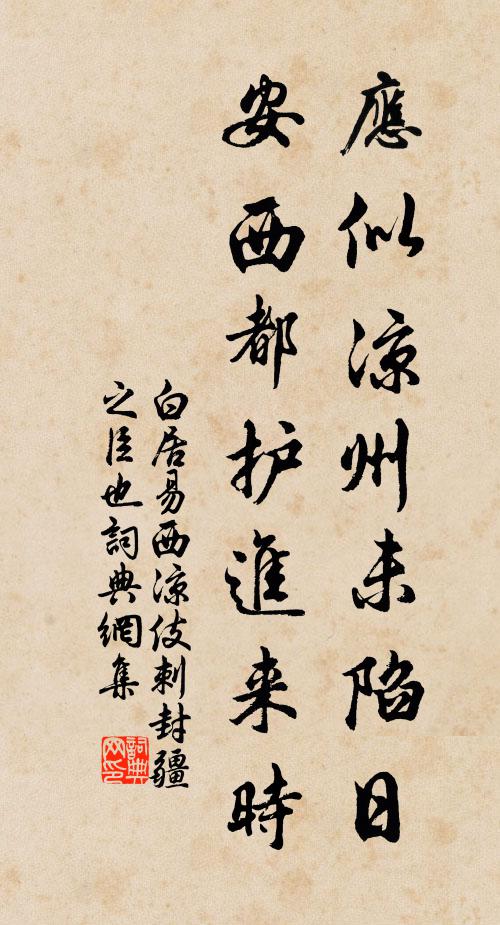 應似涼州未陷日
安西都护進来時
白居易西凉伎刺封疆
之臣也詞典網集
詞典网印